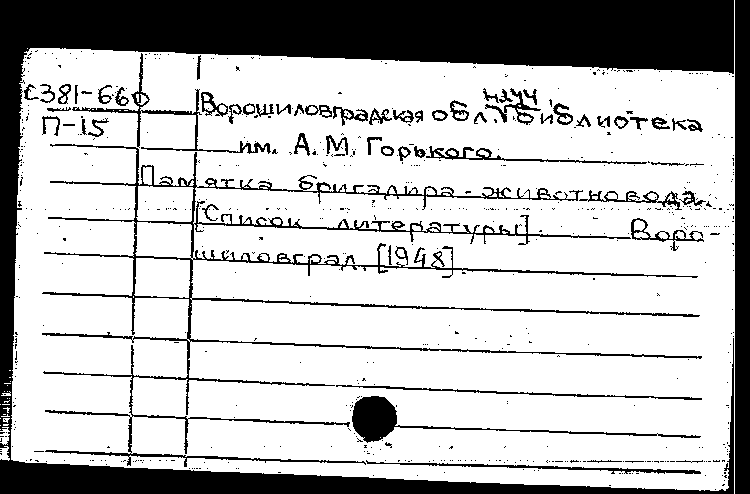 С381-660
П-15
Ворошиловградская обл. научн библиотека
им. А. М. Горького.
Памятка бригадира-животновода.
[Список литературы]. Воро-
шиловград. [1948].